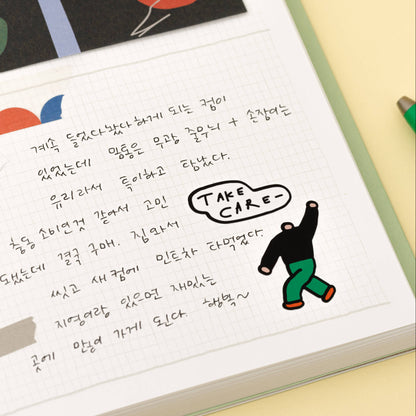 계속 들었다 놨다하게 되는 컵이
있었는데 몸통은 무광 줄무늬 + 손잡이는
유리라서 특이하고 탐났다.
충동 소비인것 같아서 고민
됐는데 결국 구매. 집 와서
씻고 새 컵에 민트차 타먹었다.
지영이랑 있으면 재밌는
곳에 많이 가게 된다. 행복~
TAKE
CARE-